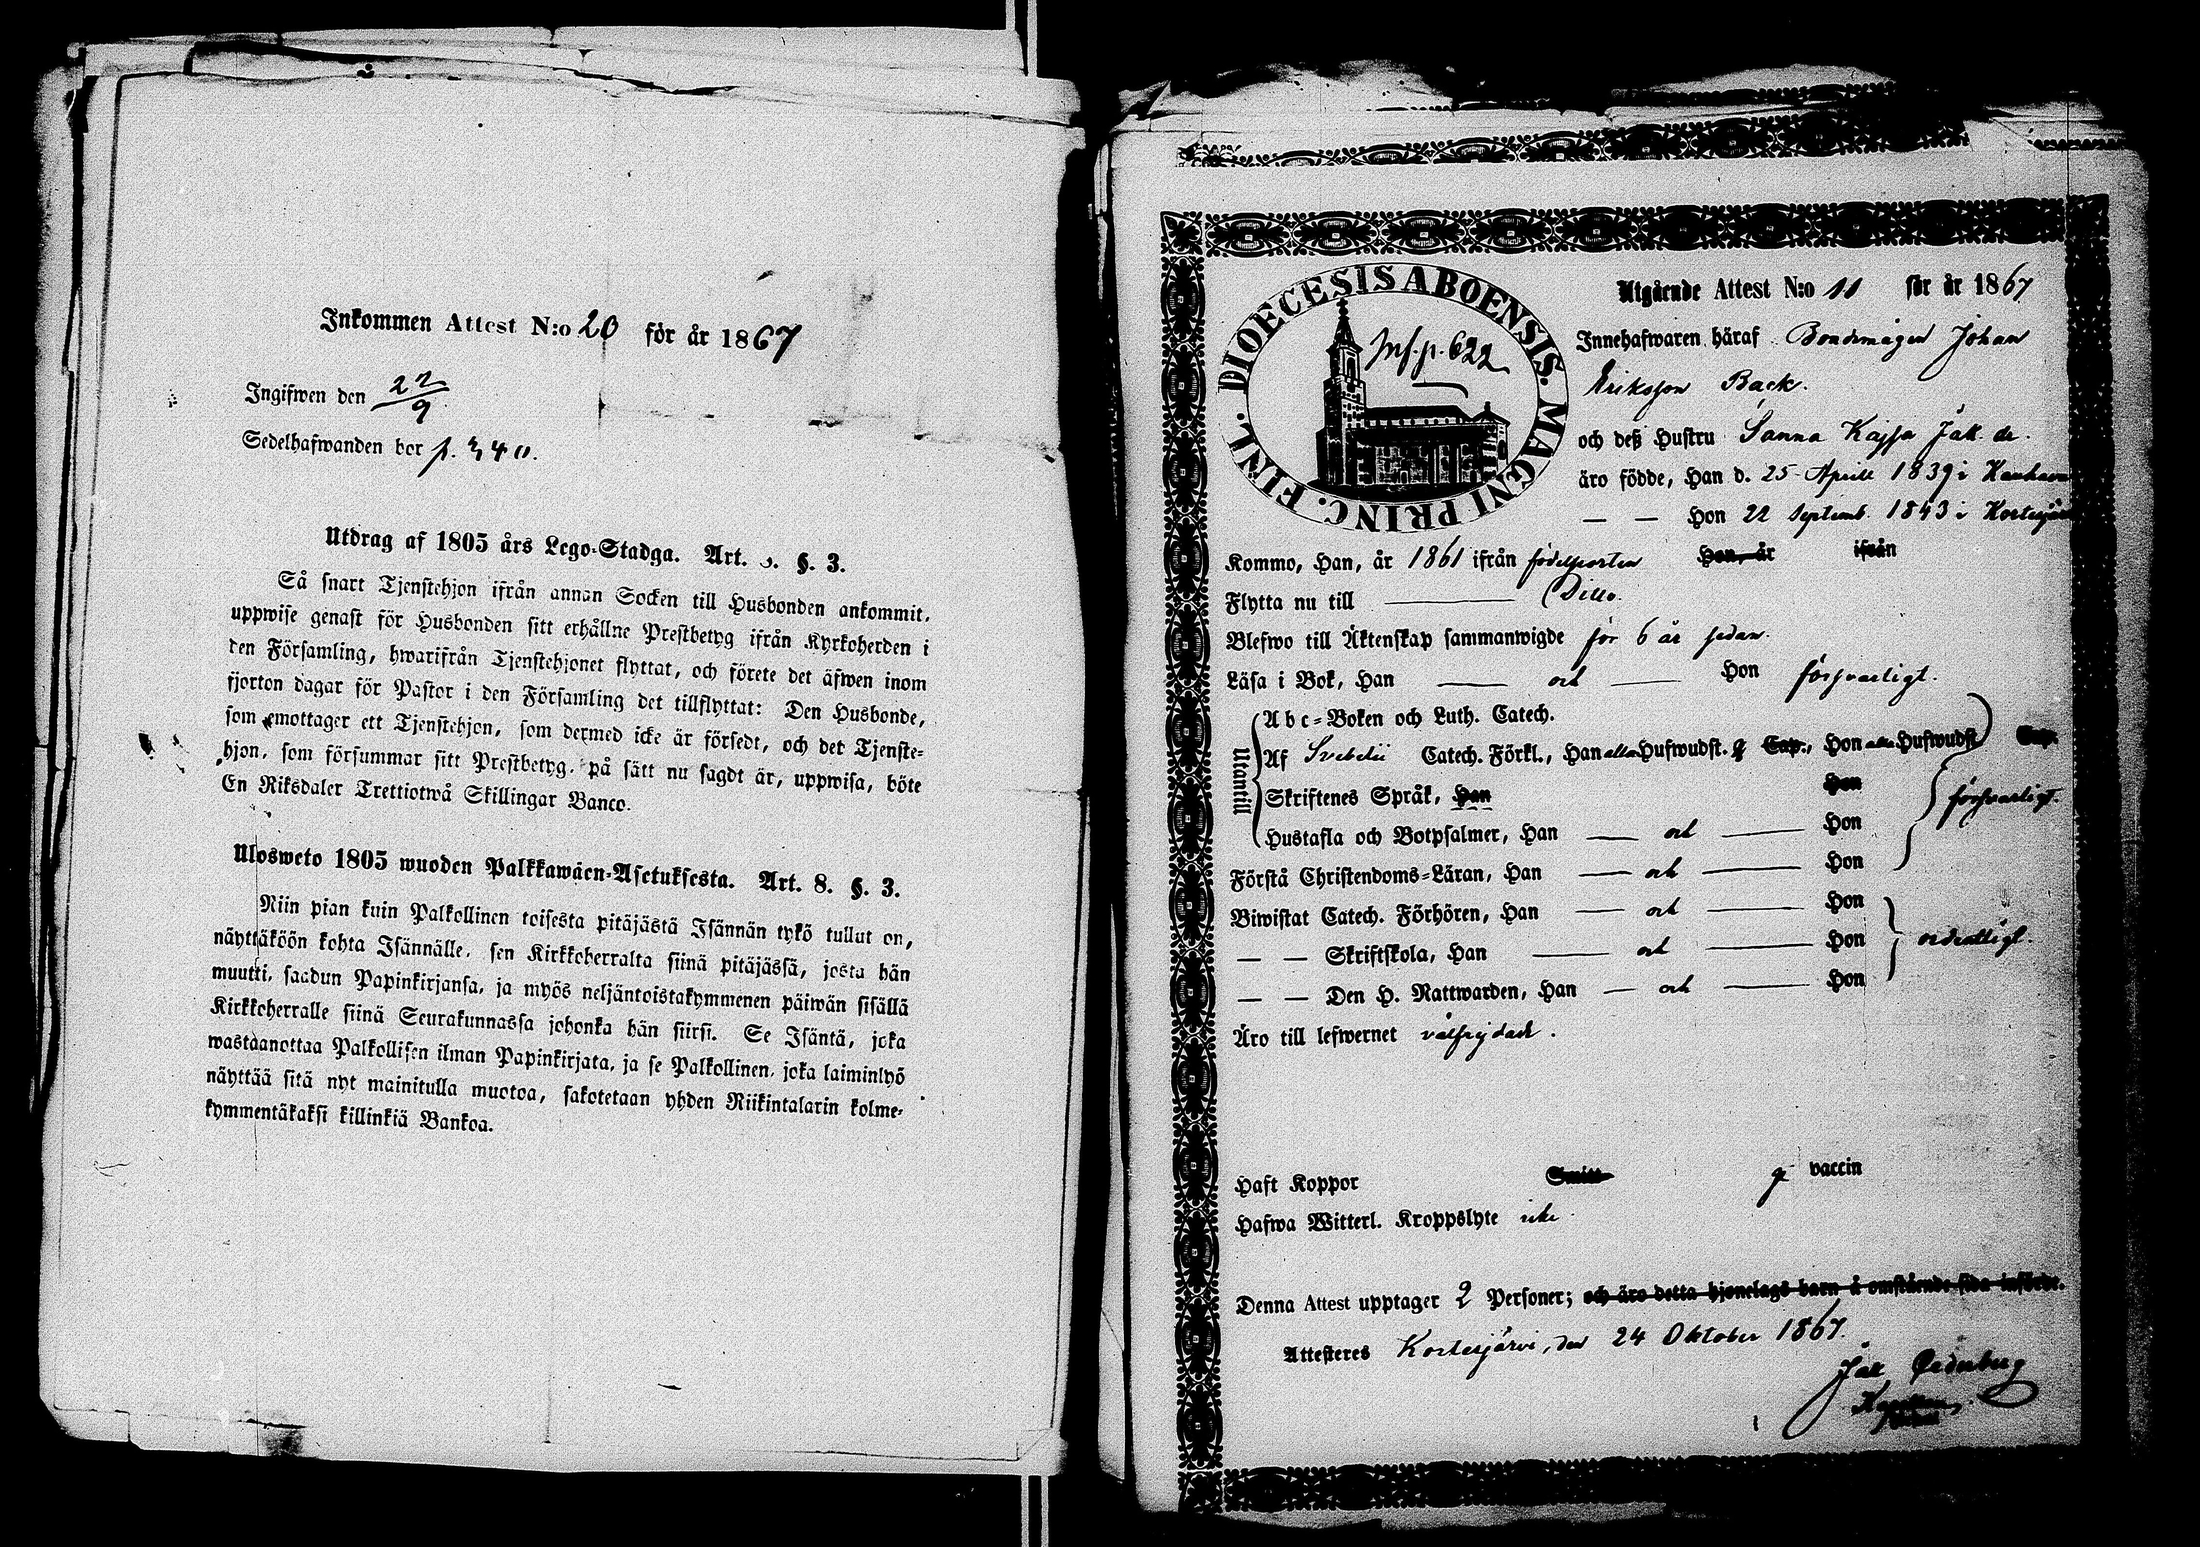 Inkommen Attest N:o 20 för år 1867
Ingifwen den 22/9
Sedelhafwanden bor p. 340.
Utdrag af 1805 års Lego-Stadga. Art. §. 3.
Så snart Tjenstehjon ifrån annan Socken till Husbonden ankommit,
uppwise genast för Husbonden sitt erhållne Prestbetyg ifrån Kyrkoherden i
den Församling, hwarifrån Tjenstehjonet flyttat, och förete det äfwen inom
fjorton dagar för Pastor i den Församling det tillflyttat: Den Husbonde,
som emottager ett Tjenstehjon, som dermed icke är försedt, och det Tjenste-
hjon, som försummar sitt Prestbetyg, på sätt nu sagdt är, uppwisa, böte
En Riksdaler Trettiotwå Skillingar Banco.
Ulosweto 1805 wuoden Palkkawäen-Asetuksesta. Art. 8. §. 3.
Niin pian kuin Palkollinen toisesta pitäjästä Isännän tykö tullut on,
näyttäköön kohta Isännälle, sen Kirkkoherralta siinä pitäjässä, josta hän
muutti, saadun Papinkirjansa, ja myös neljäntoistakymmenen päiwän sisällä
Kirkkoherralle siinä Seurakunnassa johonka hän siirsi. Se Isäntä, joka
wastaanottaa Palkollisen ilman Papinkirjata, ja se Palkollinen, joka laiminlyö
näyttää sitä nyt mainitulla muotoa, sakotetaan yhden Riikintalarin kolme-
kymmentäkaksi killinkiä Bankoa.
DIOECESIS ABOENSIS. MAGNI PRINC. FINL.
Inf. p. 622
Utgående Attest N:o 11 för år 1867
Innehafwaren häraf Bondemågen Johan
Eriksson Back.
och deß Hustru Sanna Kajsa Jak. dr.
äro födde, Han d. 25 Aprill 1839 i Kauhava
— — Hon 22 Septemb. 1843 i Kortesjärvi
Kommo, Han, år 1861 ifrån födelseorten Hon, år ifrån
Flytta nu till — Ditto.
Blefwo till Äktenskap sammanwigde för 6 år sedan.
Läsa i Bok, Han — och — Hon försvarligt.
Utantill
Abc-Boken och Luth. Catech.
Af Svebelii Catech. Förkl., Han alla Hufwudst. Cap., Hon alla Hufwudst. Cap.
Skriftenes Språk, Han Hon försvarligt.
Hustafla och Botpsalmer, Han — och — Hon
Förstå Christendoms-Läran, Han — och — Hon
Biwistat Catech. Förhören, Han — och — Hon
— — Skriftskola, Han — och — Hon ordentligt.
— — Den H. Nattwarden, Han — och — Hon
Äro till lefwernet välfrejdade.
Haft Koppor Smitt vaccin
Hafwa Witterl. Kroppslyte icke
Denna Attest upptager 2 Personer; och äro detta hjonelags barn å omstående sida införde.
Attesteres Kortesjärvi, den 24 Oktober 1867.
Jak Cederberg